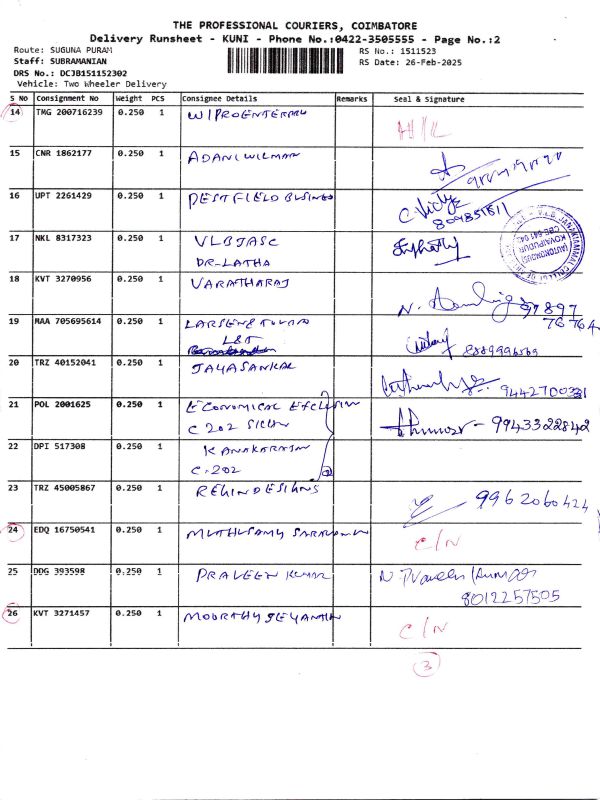 THE PROFESSIONAL COURIERS, COIMBATORE
Delivery Runsheet - KUNI - Phone No.:0422-3505555 - Page No.:2
Route: SUGUNA PURAM
RS No.: 1511523
Staff: SUBRAMANIAN
RS Date: 26-Feb-2025
DRS No.: DCJB151152302
Vehicle: Two Wheeler Delivery
S No Consignment No Weight PCS Consignee Details Remarks Seal & Signature
14 TMG 200716239 0.250 1 WIPROENTERPRI
H/L
15 CNR 1862177 0.250 1 ADANI WILMAR
16 UPT 2261429 0.250 1 PESTFIELD BUSINES
C. Vidya
809851511
17 NKL 8317323 0.250 1 VLBJASC
DR-LATHA
V.L.B. JANAKIAMMAL COLLEGE OF
(AUTONOMOUS)
KOVAIPUDUR
CBE-641 042
18 KVT 3270956 0.250 1 VARATHARAJ
97897
76764
19 MAA 705695614 0.250 1 LARSENETOUBRO
L&T
8889996569
20 TRZ 40152041 0.250 1 JAYASANKAR
9442700331
21 POL 2001625 0.250 1 ECONOMICAL EXCLUSION
C 202
9943322842
22 DPI 517308 0.250 1 KANAKARAJAN
C-202
23 TRZ 45005867 0.250 1 REKIN DESIGNS
9962060424
24 EDQ 16750541 0.250 1 MUTHUSAMY SARAVANAN
C/N
25 DDG 393598 0.250 1 PRAVEEN KUMAR
N Praveen Kumar
8012257505
26 KVT 3271457 0.250 1 MOORTHY JEYANTHI
C/N
3